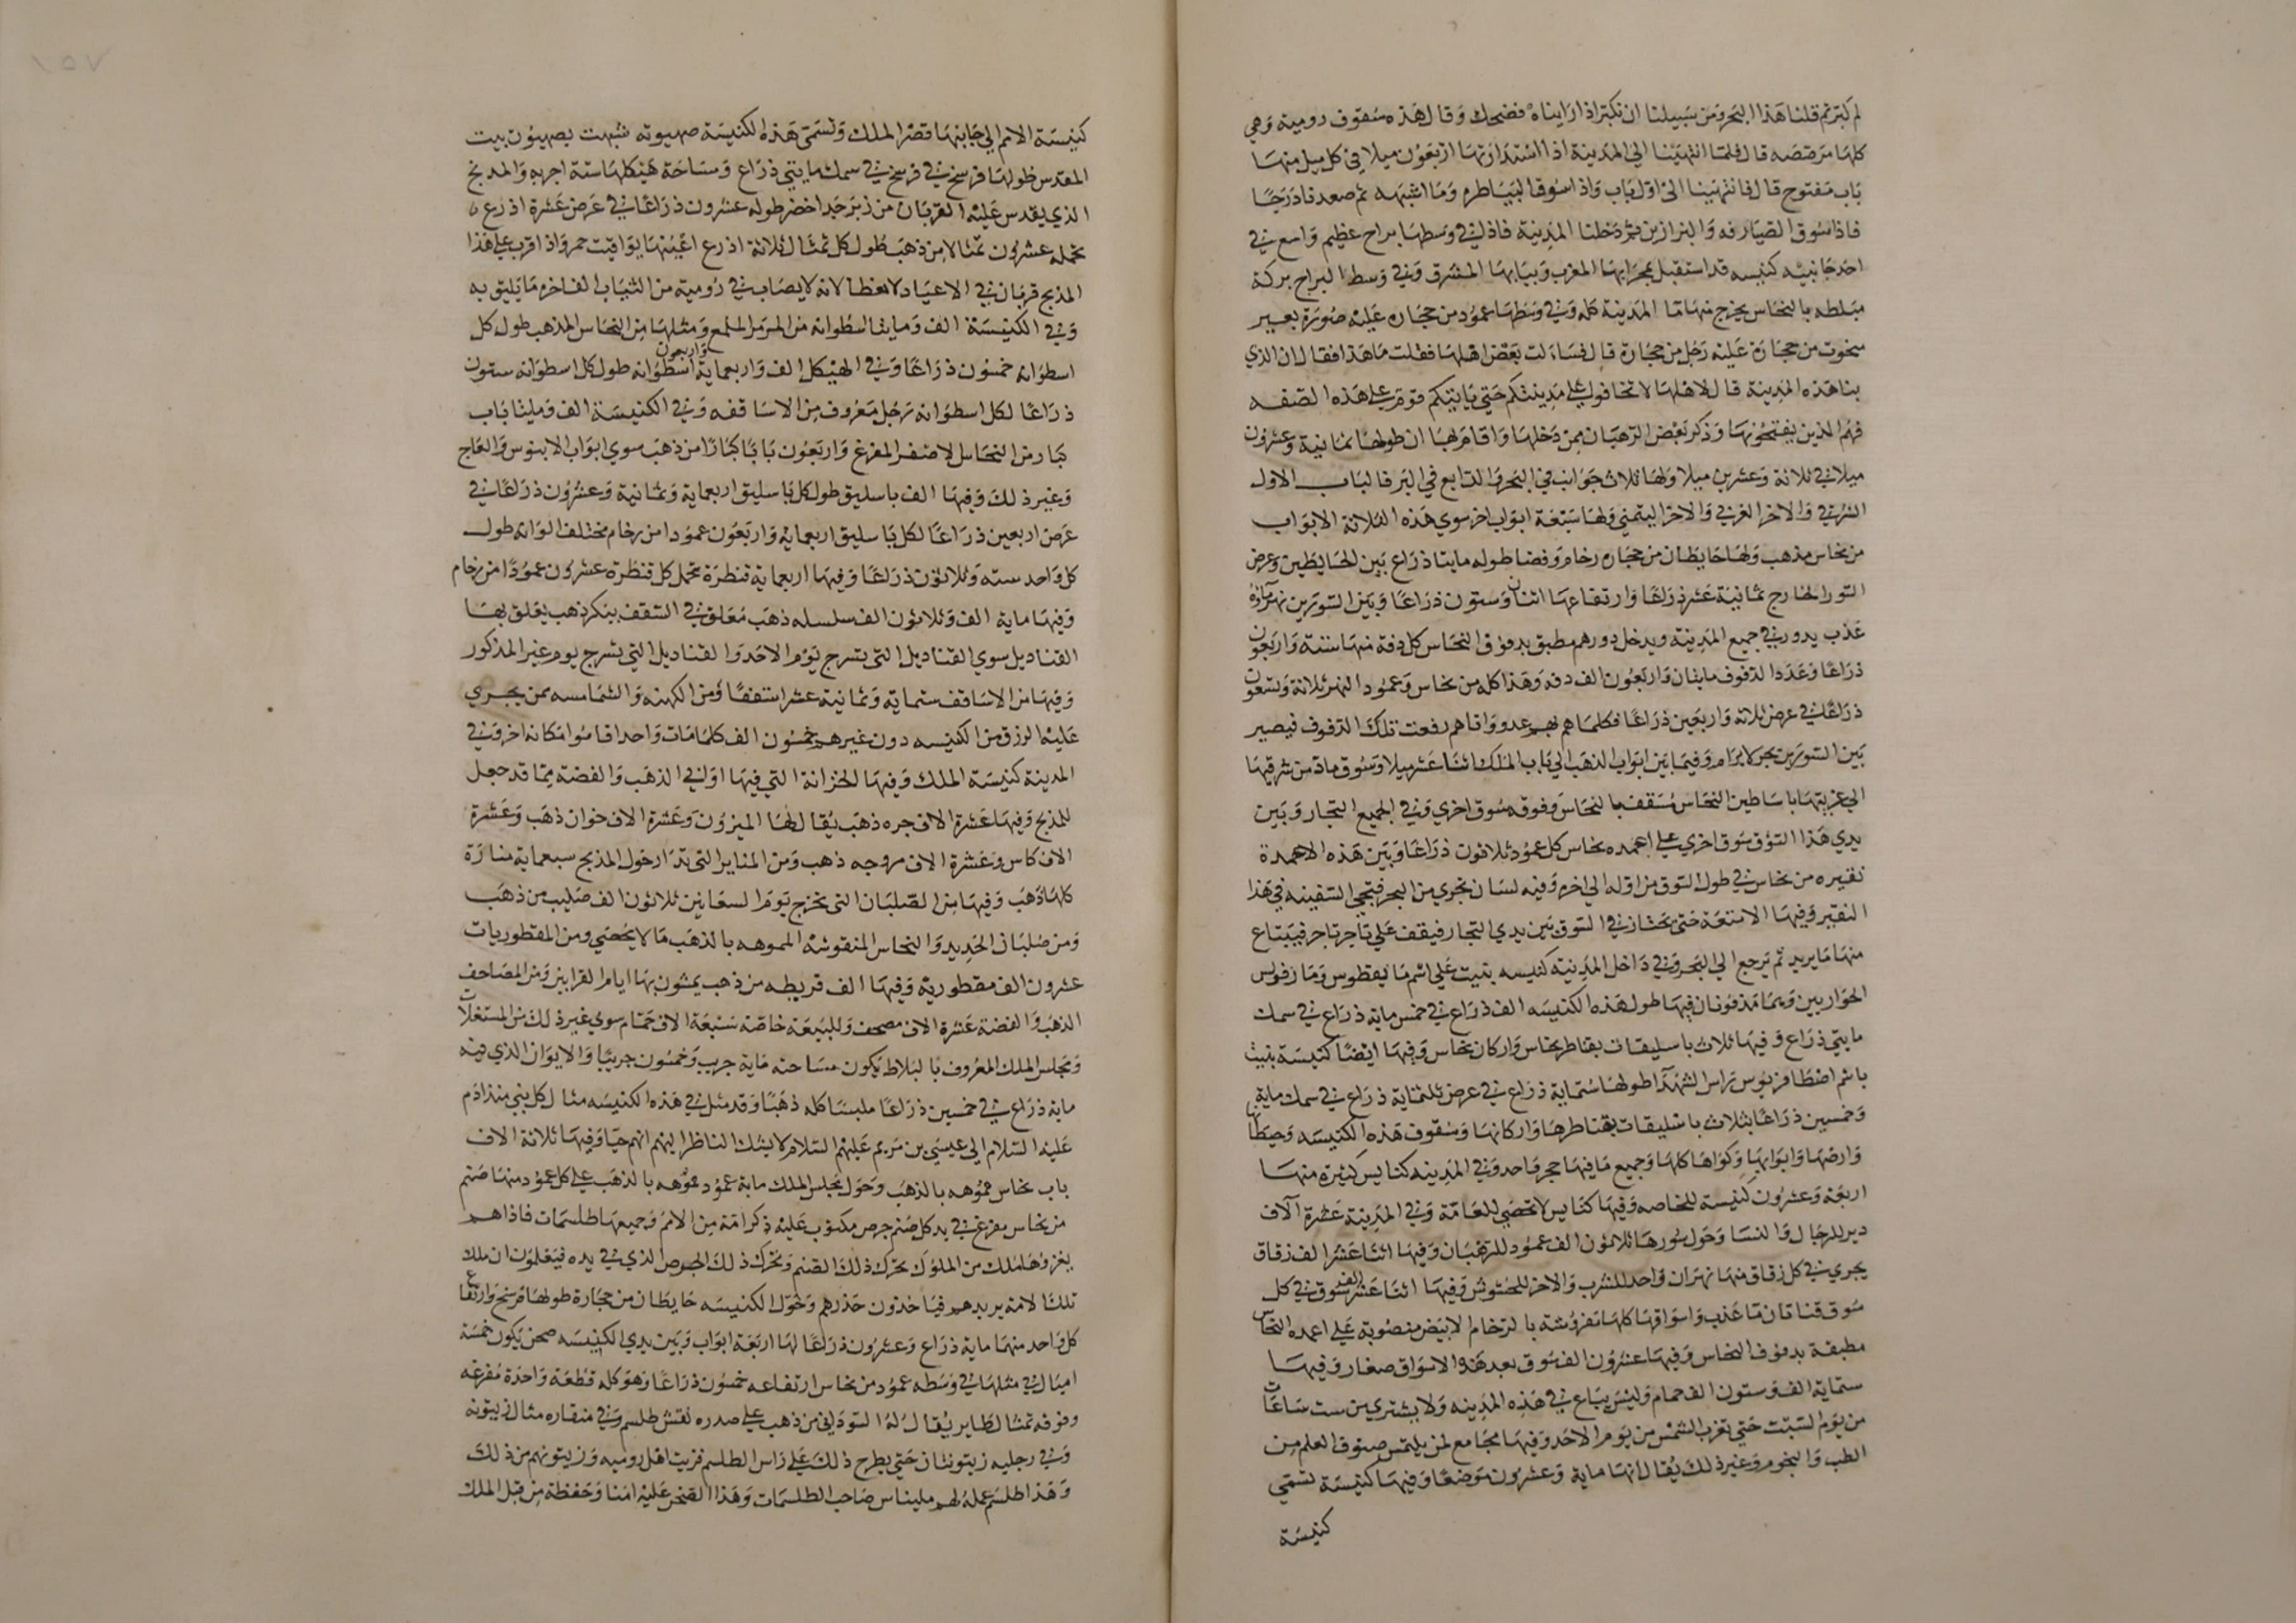 لم كبرتم قلنا هذا البحر ومن سبيلنا ان نكبر اذا رايناه فضحك وقال هذه سقوف رومية وهي
كلها مرصصه قال فلما انتهينا الى المدينة اذا استدارتها اربعون ميلا في كل ميل منها
باب مفتوح قال فانتهينا الى اول باب واذا سوق البياطره وما اشبهه ثم صعدنا درجا
فاذا سوق الصيارفه والبزازين ثم دخلنا المدينة فاذا في وسطها براح عظيم واسع في
احد جانبيه كنيسه قد استقبل بمحرابها المغرب وببابها المشرق وفي وسط البراح بركة
مبلطه بالنحاس يخرج منها ما المدينة كله وفي وسطها عمود من حجاره عليه صورة بعير
منحوت من حجارة عليه رجل من حجارة قال فساءلت بعض اهلها فقلت ما هذا فقال ان الذي
بنا هذه المدينة قال لاهلها لا تخافوا على مدينتكم حتى ياتيكم قوم على هذه الصفه
فهم الذين يفتحونها وذكر بعض الرهبان ممن دخلها واقام بها ان طولها ثمانية وعشرون
ميلا في ثلاثة وعشرين ميلا ولها ثلاث جوانب في البحر والرابع في البر فالباب الاول
الشرقي والاخر الغربي والاخر اليمني ولها سبعة ابواب اخر سوى هذه الثلاثة الابواب
من نحاس مذهب ولها حايطان من حجاره رخام وفضا طوله مايتا ذراع بين الحايطين وعرض
السور الخارج ثمانية عشر ذراعا وارتفاعها اثنان وستون ذراعا وبين السورين نهر ماؤه
عذب يدور في جميع المدينه ويدخل دورهم مطبق بدفوف النحاس كل دفة منها ستة واربعون
ذراعا وعدد الدفوف مايتان واربعون الف دفه وهذا كله من نحاس وعمود النهر ثلاثة وتسعون
ذراعا في عرض ثلاثه واربعين ذراعا فكلما هم بهم عدو واتاهم رفعت تلك الدفوف فيصير
بين السورين بحر لا يرام وفيما بين ابواب الذهب الى باب الملك اثنا عشر ميلا وسوق ماد من شرقيها
الى غربيها باساطين النحاس مسقف بالنحاس وفوقه سوق اخرى وفي الجميع التجار وبين
يدي هذا السوق سوق اخرى على اعمده نحاس كل عمود ثلاثون ذراعا وبين هذه الاعمدة
نقيره من نحاس في طول السوق من اوله الى اخره وفيه لسان يجري من البحر فتجي السفينه في هذا
النقير وفيها الامتعة حتى تجتاز في السوق بين يدي التجار فيقف على تاجر تاجر فيبتاع
منها ما يريد ثم يرجع الى البحر وفي داخل المدينة كنيسه بنيت على اسم ماربطرس وماربولس
الحواريين وهما مدفونان فيها طول هذه الكنيسه الف ذراع في خمس ماية ذراع في سمك
مايتي ذراع وفيها ثلاث باسليقات بقناطر نحاس واركان نحاس وفيها ايضا كنيسة بنيت
باسم اصطافنوس راس الشهدا طولها ستماية ذراع في عرض ثلثماية ذراع في سمك ماية
وخمسين ذراعا بثلاث باسليقات بقناطرها واركانها وسقوف هذه الكنيسه وحيطانها
وارضها وابوابها وكواها كلها وجميع ما فيها حجر واحد وفي المدينه كنايس كثيرة منها
اربعة وعشرون كنيسة للخاصه وفيها كنايس لا تحصى للعامة وفي المدينة عشرة آلاف
دير للرجال والنسا وحول سورها ثلاثون الف عمود للرهبان وفيها اثنا عشر الف زقاق
يجري في كل زقاق منها نهران واحد للشرب والاخر للحشوش وفيها اثنا عشر الف سوق في كل
سوق قناة ما عذب واسواقها كلها مفروشة بالرخام الابيض منصوبة على اعمده النحاس
مطبقة بدفوف النحاس وفيها عشرون الف سوق بعد هذه الاسواق صغار وفيها
ستماية الف وستون الف حمام وليس يباع في هذه المدينه ولا يشترى من ست ساعات
من يوم السبت حتى تغرب الشمس من يوم الاحد وفيها مجامع لمن يلتمس صنوف العلم من
الطب والنجوم وغير ذلك يقال انها ماية وعشرون موضعا وفيها كنيسة تسمى
كنيسة
كنيسة الامم الى جانبها قصر الملك وتسمى هذه الكنيسة صهيونه شبهت بصهيون بيت
المقدس طولها فرسخ في فرسخ في سمك مايتي ذراع ومساحة هيكلها ستة اجربه والمذبح
الذي يقدس عليه القربان من زبرجد اخضر طوله عشرون ذراعا في عرض عشرة اذرع
تحمله عشرون تمثالا من ذهب طول كل تمثال ثلاثة اذرع اعينها يواقيت حمر واذا قرب على هذا
المذبح قربان في الاعياد لا يطفا لانه لا يصاب في رومية من الثياب الفاخره ما يليق به
وفي الكنيسة الف ومايتا اسطوانه من المرمر الملمع ومثلها من النحاس المذهب طول كل
اسطوانه خمسون ذراعا وفي الهيكل الف واربعماية واربعون اسطوانه طول كل اسطوانه ستون
ذراعا لكل اسطوانه رجل معروف من الاساقفه وفي الكنيسة الف ومايتا باب
كبار من النحاس الاصفر المفرغ واربعون بابا كبارا من ذهب سوى ابواب الابنوس والعاج
وغير ذلك وفيها الف باسليق طول كل باسليق اربعماية وثمانية وعشرون ذراعا في
عرض اربعين ذراعا لكل باسليق اربعمايه واربعون عمودا من رخام مختلف الوانه طول
كل واحد سته وثلاثون ذراعا وفيها اربعماية قنطرة تحمل كل قنطرة عشرون عمودا من رخام
وفيها ماية الف وثلاثون الف سلسله ذهب معلق في السقف ببكر ذهب يعلق بها
القناديل سوى القناديل التي تسرج يوم الاحد والقناديل التي تسرج يوم غير المذكور
وفيها من الاساقف ستماية وثمانية عشر اسقفا ومن الكهنه والشمامسه ممن يجري
عليه الرزق من الكنيسه دون غيرهم خمسون الف كلما مات واحد اقاموا مكانه اخر وفي
المدينة كنيسة الملك وفيها الخزانة التي فيها اواني الذهب والفضة مما قد جعل
للمذبح وفيها عشرة الاف جره ذهب يقال لها الميزون وعشرة الاف خوان ذهب وعشرة
الاف كاس وعشرة الاف مروحه ذهب ومن المناير التي تدار حول المذبح سبعماية منارة
كلها ذهب وفيها من الصلبان التي تخرج يوم السعانين ثلاثون الف صليب من ذهب
ومن صلبان الحديد والنحاس المنقوشه المموهه بالذهب ما لا يحصى ومن المقطوريات
عشرون الف مقطورية وفيها الف مقرطه من ذهب يمشون بها ايام القرابين ومن المصاحف
الذهب والفضة عشرة الاف مصحف وللبيعة خاصة سبعة الاف حمام سوى غير ذلك من المستغلات
ومجلس الملك المعروف بالبلاط يكون مساحته ماية جريب وخمسون جريبا والايوان الذي فيه
ماية ذراع في خمسين ذراعا ملبسا كله ذهبا وقد مثل في هذه الكنيسه مثال كل نبي منذ ادم
عليه السلام الى عيسى بن مريم عليهم السلام لا يشك الناظر اليهم انهم احيا وفيها ثلاثة الاف
باب نحاس مموهه بالذهب وحول مجلس الملك ماية عمود مموهه بالذهب على كل عمود منها صنم
من نحاس مفرغ في يد كل صنم جرس مكتوب عليه ذكر امة من الامم وجميعها طلسمات فاذا هم
يغزوها ملك من الملوك تحرك ذلك الصنم وتحرك ذلك الجرس الذي في يده فيعلمون ان ملك
تلك الامة يريدهم فياخذون حذرهم وحول الكنيسه حايطان من حجارة طولها فرسخ وارتفاع
كل واحد منهما ماية ذراع وعشرون ذراعا لها اربعة ابواب وبين يدي الكنيسه صحن يكون خمسة
اميال في مثلها في وسطه عمود من نحاس ارتفاعه خمسون ذراعا وهو كله قطعة واحدة مفرغه
وفوقه تمثال طاير يقال له السوداني من ذهب على صدره نقش طلسم وفي منقاره مثال زيتونه
وفي رجليه زيتونتان حتى يطرح ذلك على راس الطلسم فزيت اهل روميه وزيتونهم من ذلك
وهذا طلسم عمله لهم بليناس صاحب الطلسمات وهذا الصحن عليه امنا وحفظة من قبل الملك